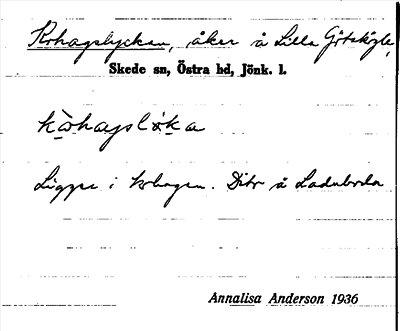 Kohagslyckan, åker å Lilla Götaböla,
Skede sn, Östra hd, Jönk. l.
Ligger i kohagen. Dito å Laduboda
Annalisa Anderson 1936